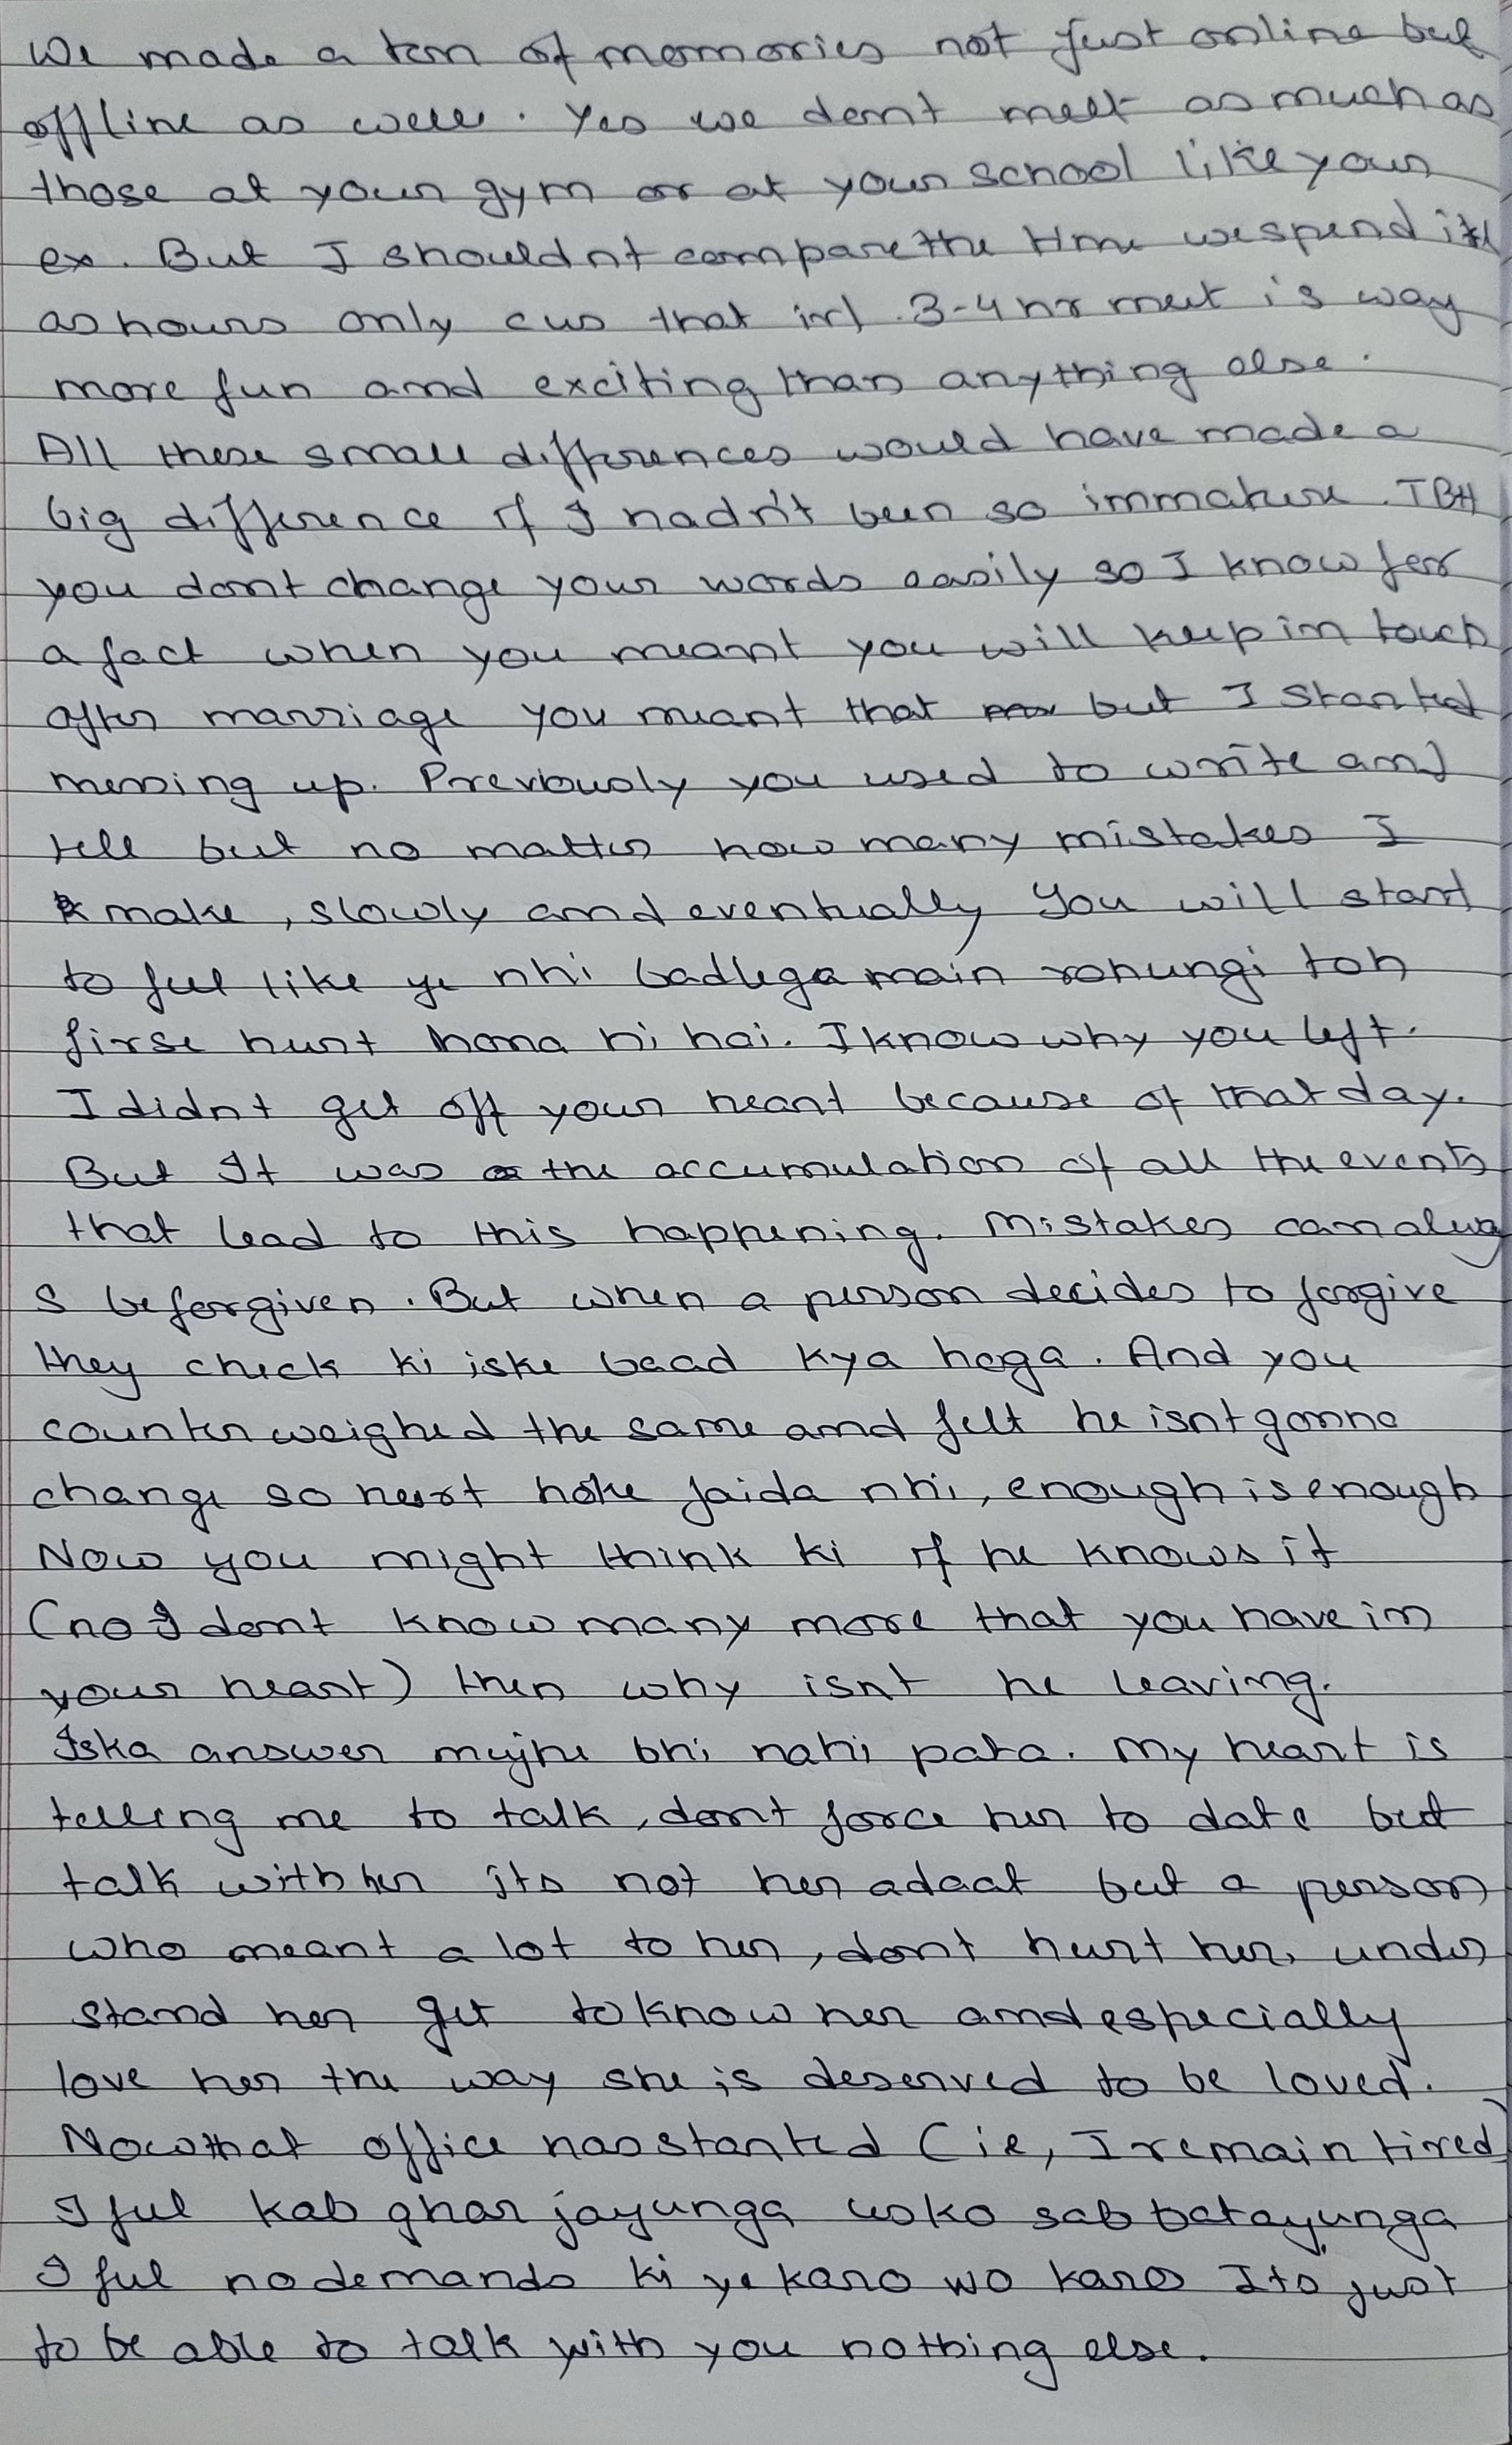 We made a ton of memories not just online but
offline as well. Yes we dont meet as much as
those at your gym or at your school like your
ex. But I shouldnt compare the time we spend irl
as hours only cus that irl 3-4 hr meet is way
more fun and exciting than anything else.
All these small differences would have made a
big difference if I hadn't been so immature. TBH
you dont change your words easily so I know for
a fact when you meant you will keep in touch
after marriage you meant that but I started
messing up. Previously you used to write and
tell but no matter how many mistakes I
make, slowly and eventually you will start
to feel like ye nhi badlega main rohungi toh
firse hurt hona hi hai. I know why you left.
I didnt get off your heart because of that day.
But It was the accumulation of all the events
that lead to this happening. Mistakes can alway
s be forgiven. But when a person decides to forgive
they check ki iske baad kya hoga. And you
counter weighed the same and felt he isnt gonna
change so hurt hoke faida nhi, enough is enough
Now you might think ki if he knows it
(no I dont know many more that you have in
your heart) then why isnt he leaving.
Iska answer mujhe bhi nahi pata. My heart is
telling me to talk, dont force her to date but
talk with her its not her adaat but a person
who meant a lot to her, dont hurt her, under
stand her get to know her and especially
love her the way she is deserved to be loved.
Now that office has started (ie, I remain tired)
I ful kab ghar jayunga usko sab batayunga
I ful no demands ki ye karo wo karo Its just
to be able to talk with you nothing else.